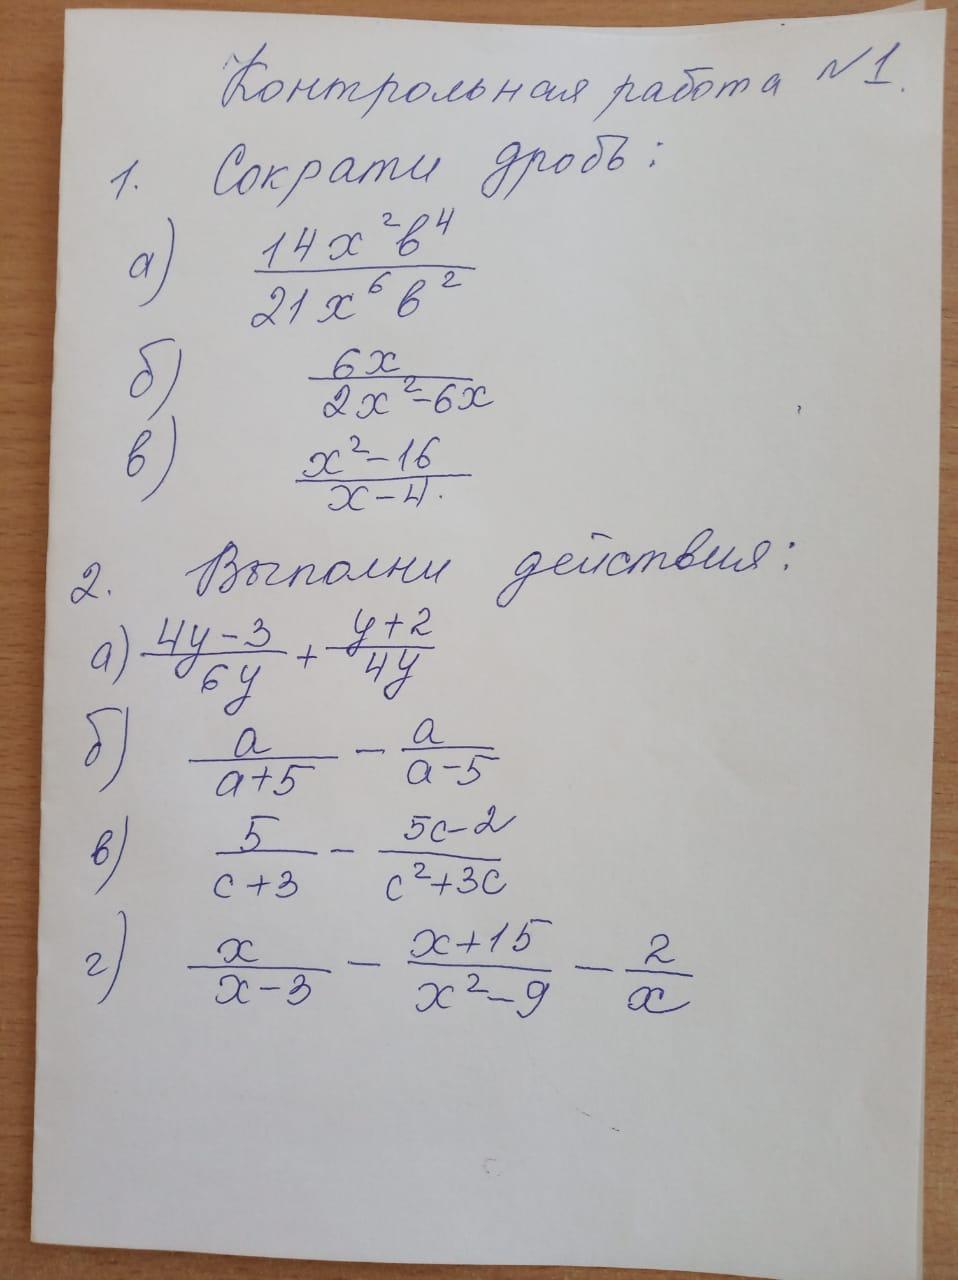 Контрольная работа №1.
1. Сократи дробь:
а) 14x²b⁴ / 21x⁶b²
б) 6x / 2x²-6x
в) x²-16 / x-4.
2. Выполни действия:
а) 4y-3 / 6y + y+2 / 4y
б) a / a+5 - a / a-5
в) 5 / c+3 - 5c-2 / c²+3c
г) x / x-3 - x+15 / x²-9 - 2 / x